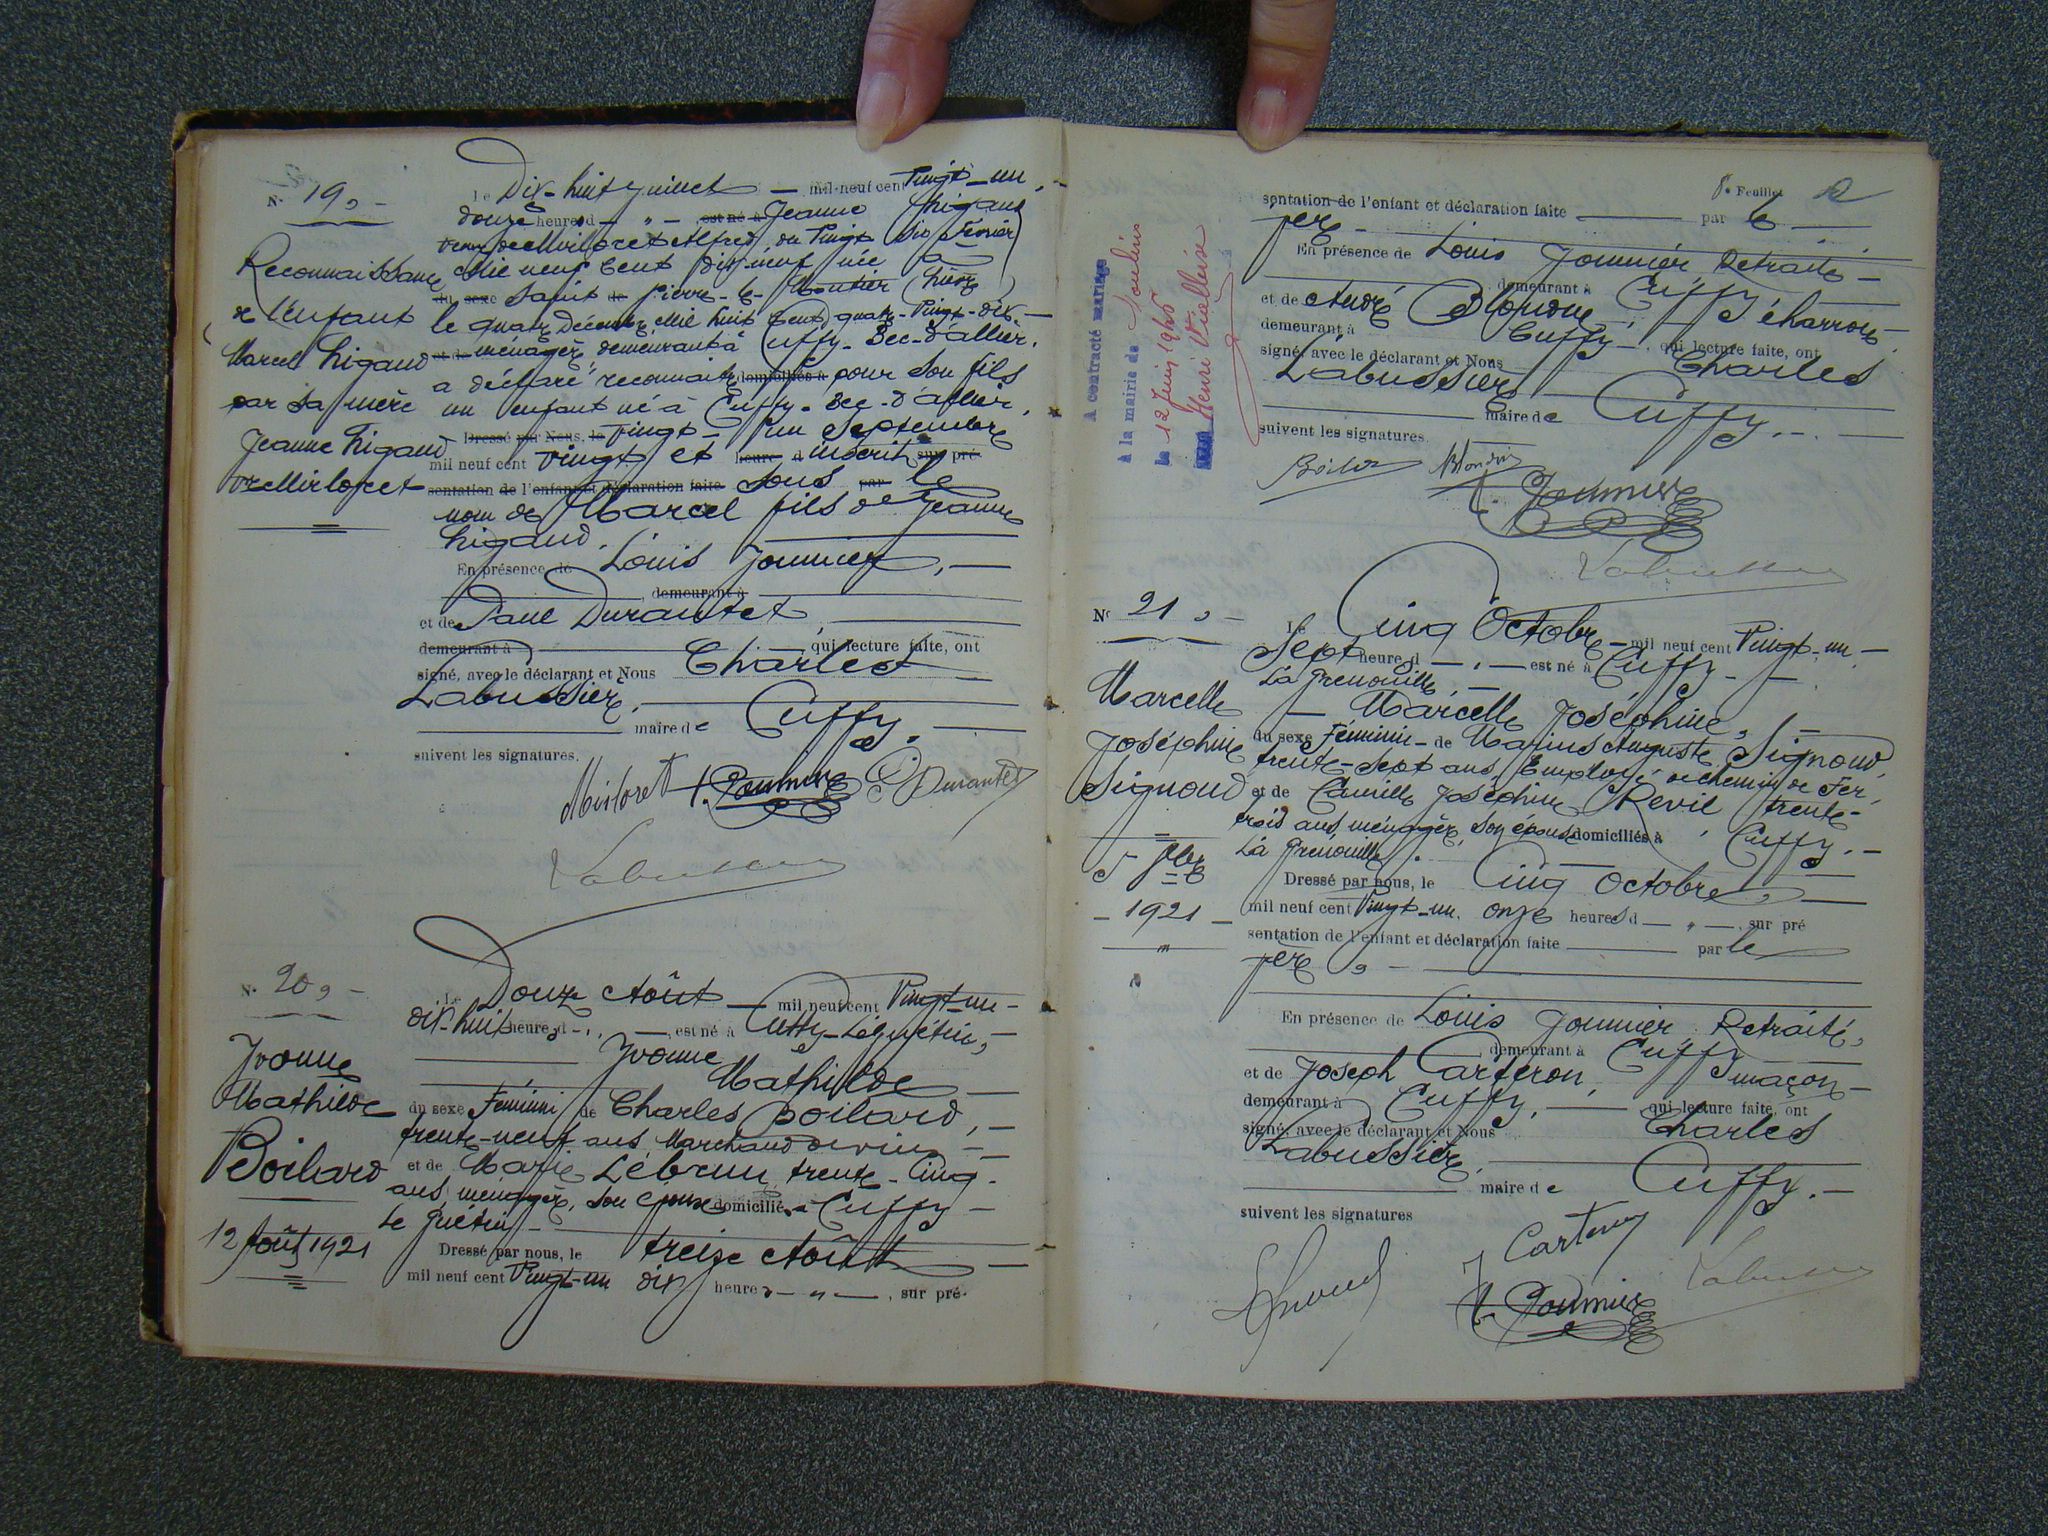 N° 19
Reconnaissance
de l'enfant
Marcel Ligaud
par sa mère
Jeanne Ligaud
Vve Mirloret
Le Dix-huit Juillet mil neuf cent Vingt-un,
douze heures d est né à Jeanne Ligaud
veuve de Mirloret Alfred, du Vingt six Février
Mil neuf Cent dix-neuf née à
du sexe Saint de Pierre-le-Moutier (Nièvre)
le quatre Décembre Mil huit Cent quatre-Vingt-dix-
et de ménagère demeurant à Cuffy-Bec-d'allier,
a déclaré reconnaitre domiciliés à pour son fils
un enfant né à Cuffy-Bec-d'allier,
Dressé par Nous, le Vingt-un Septembre
mil neuf cent vingt et heure d inscrit sur pré-
sentation de l'enfant et déclaration faite sous par le
nom de Marcel fils de Jeanne
Ligaud.
En présence de Louis Joumier,
demeurant à
et de Paul Durantet,
demeurant à qui lecture faite, ont
signé, avec le déclarant et Nous Charles
Labussière,
maire de Cuffy.
suivent les signatures.
Mirloret L. Joumier P Durantet
Labussière
N° 20
Yvonne
Mathilde
Boilard
12 Août 1921
Le Douze Août mil neuf cent Vingt-un-
dix-huit heures d est né à Cuffy-Leguétin,
Yvonne
Mathilde
du sexe Féminin de Charles Boilard,
trente-neuf ans, Marchand de vin
et de Marie Lebrun, trente-Cinq-
ans, ménagère, son épouse domiciliés à Cuffy-
Le guétin-
Dressé par nous, le treize Août
mil neuf cent Vingt-un dix heures, sur pré-
8e Feuillet
sentation de l'enfant et déclaration faite par le
père
En présence de Louis Joumier, Retraité-
demeurant à Cuffy
et de André Blondin, charron-
demeurant à Cuffy, qui lecture faite, ont
signé, avec le déclarant et Nous Charles
Labussière
maire de Cuffy.
suivent les signatures.
Boilard Blondin
L. Joumier
Labussière
A contracté mariage
A la mairie de Moulins
Le 12 Juin 1945
Henri
N° 21
Marcelle
Joséphine
Signoud
5 8bre
1921
Le Cinq Octobre mil neuf cent Vingt-un-
Sept heure d est né à Cuffy-
La Grenouille
Marcelle Joséphine,
du sexe Féminin de Marius Auguste Signoud,
trente-sept ans, Employé de chemin de Fer,
et de Camille Joséphine Revil trente-
trois ans, ménagère, son épouse domiciliés à Cuffy.
La Grenouille.
Dressé par nous, le Cinq Octobre
mil neuf cent Vingt-un, onze heures d, sur pré
sentation de l'enfant et déclaration faite par le
père
En présence de Louis Joumier, Retraité,
demeurant à Cuffy
et de Joseph Carteron, maçon-
demeurant à Cuffy, qui lecture faite, ont
signé, avec le déclarant et Nous Charles
Labussière,
maire de Cuffy.
suivent les signatures
Signoud J Carteron Labussière
L. Joumier